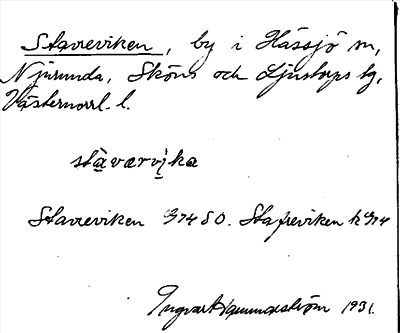 Stavreviken, by i Hässjö sn,
Njurunda, Sköns och Ljustorps tg,
Västernorrl. l.
stàvərvi̱ka
Stavreviken 1974 S O. Stafreviken
Ingvar Hammarström 1931.